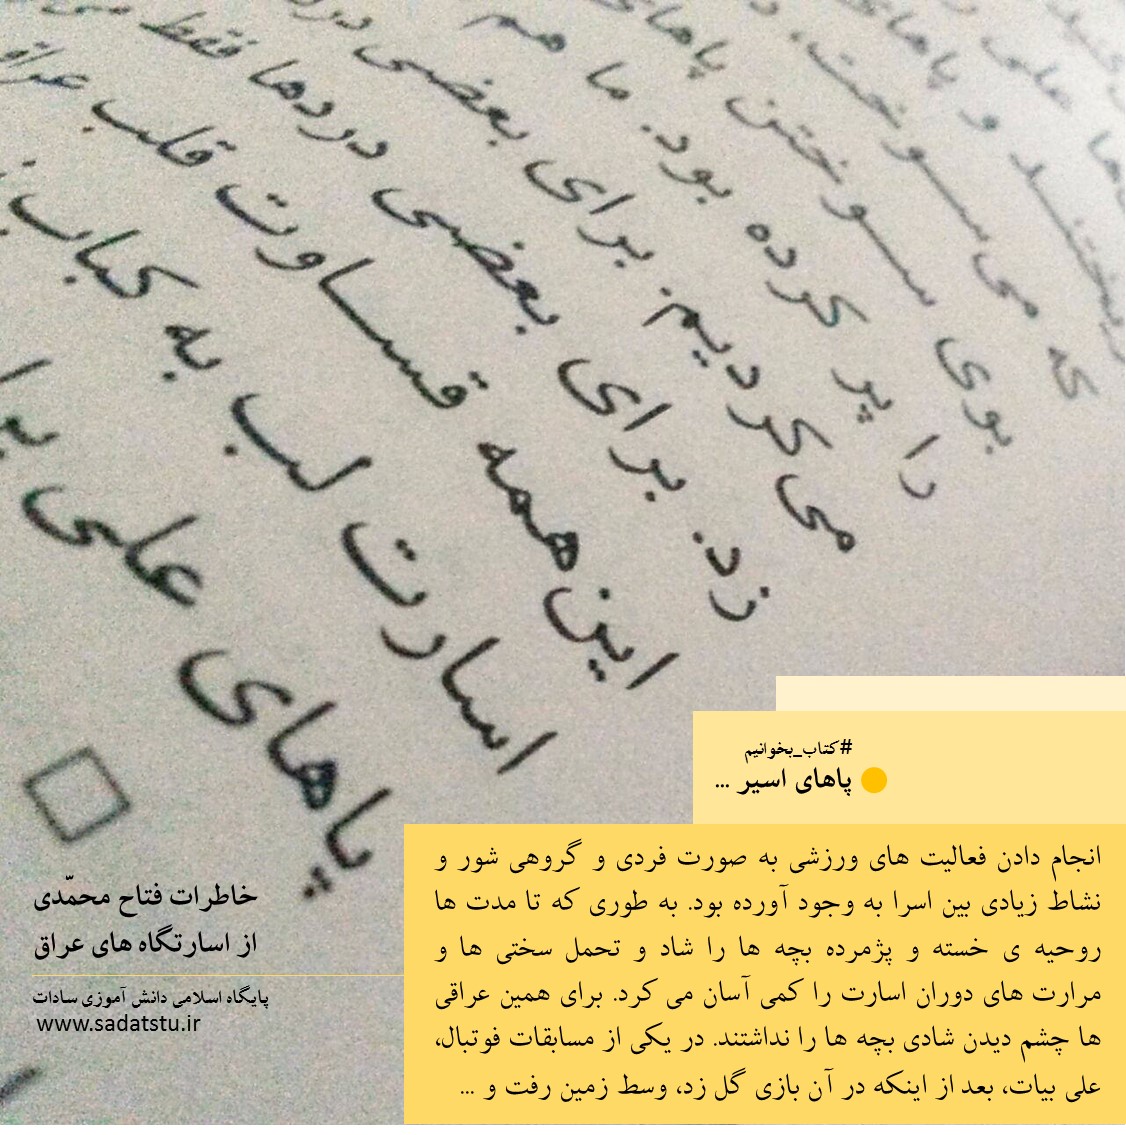 که می‌سوخت،
بوی سوختن پاهای
را پر کرده بود. ما هم
می‌کردیم. برای بعضی
زد. برای بعضی دردها فقط
این همه قساوت قلب
اسارت لب به کباب
پاهای علی
#کتاب_بخوانیم
پاهای اسیر ...
انجام دادن فعالیت های ورزشی به صورت فردی و گروهی شور و
نشاط زیادی بین اسرا به وجود آورده بود. به طوری که تا مدت ها
روحیه ی خسته و پژمرده بچه ها را شاد و تحمل سختی ها و
مرارت های دوران اسارت را کمی آسان می کرد. برای همین عراقی
ها چشم دیدن شادی بچه ها را نداشتند. در یکی از مسابقات فوتبال،
علی بیات، بعد از اینکه در آن بازی گل زد، وسط زمین رفت و ...
خاطرات فتاح محمّدی
از اسارتگاه های عراق
پایگاه اسلامی دانش آموزی سادات
www.sadatstu.ir